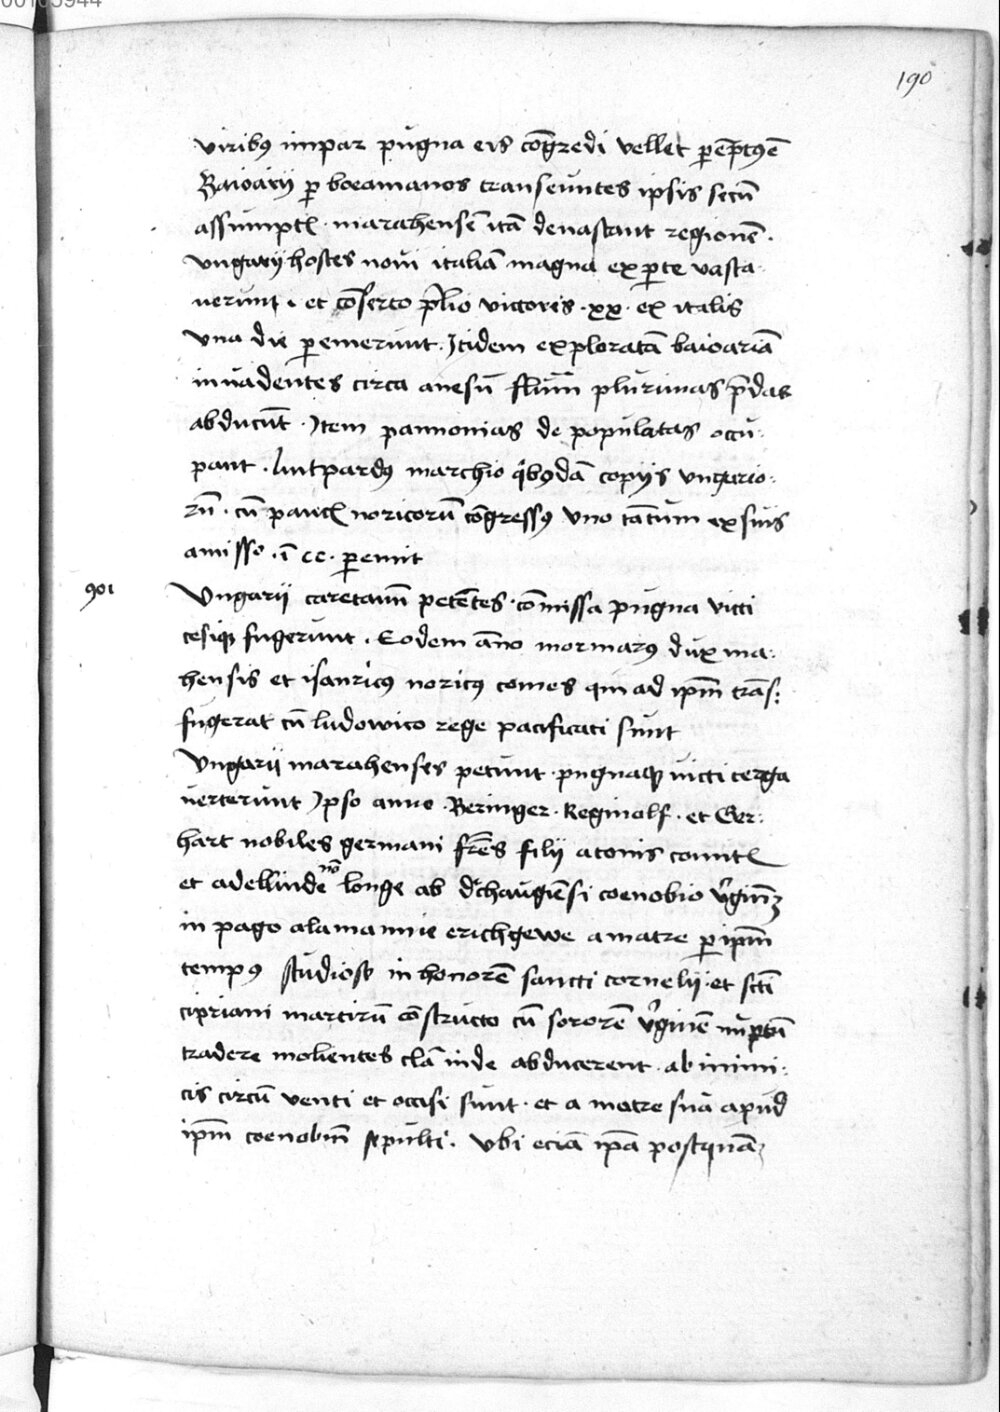 00105944
190
viribꝯ impar pugna eis cōgredi vellet ꝑēptꝯē
Baioarij ꝑ boeamanos transeuntes ipsis secū
assumptꝭ marahensē itā deuastant regionē.
vngarij hostes noui italiā magna ex ꝑte vasta-
uerunt. et cōserto p̄lio victores .xx. ex italis
vna die ꝑemerunt. Itidem exploratā baioariā
inuadentes circa anesū fluūm plurimas p̄das
abducūt. Item pannonias de populatas occu-
pant. liutpardꝯ marchio qͥbꝯdā copijs vngario-
rū. cū paucꝭ noricorū cōgressꝯ vno tantum ex suis
amisso .ī cc. ꝑemit
901
Vngarii caretanū petētes. cōmissa pugna victi
cesiqꝫ fugerunt. Eodem āno mormarꝯ dux ma-
hensis et isanricꝯ noricꝯ comes qui ad ip̄m trās-
fugerat cū ludowico rege pacificati sunt
Vngarii marahenses petunt. pugnaqꝫ victi terga
verterunt Ipso anno. Beringer. Reginolf. et Ger-
hart nobiles germani fr̄es filij atonis comitꝭ
et adellinde nō longe ab dͥchaugiēsi coenobio v̓ginū
in pago alamannie erichgewe a matre ꝑ ip̄m
tempꝯ studiose in honorē sancti cornelij et sc̄ti
cipriani martirū cōstructo cū sororē v̓ginē nuptū
tradere molientes clā inde abducerent. ab inimi-
cis circū venti et occisi sunt. et a matre sua apud
ip̄m coenobiū sepulti. vbi eciā ip̄a postquā